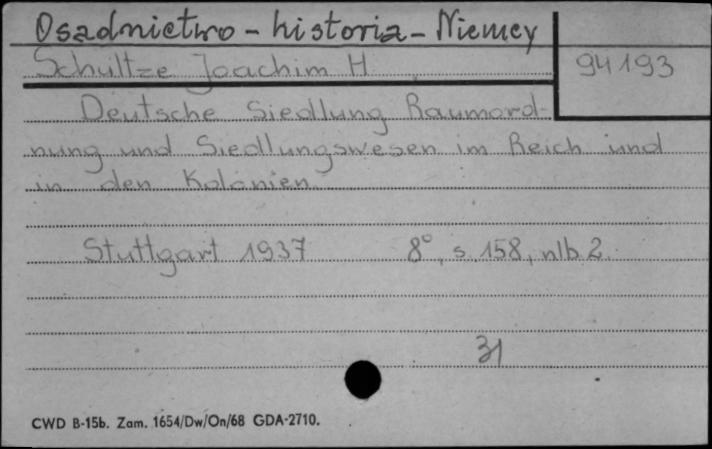 Osadnictwo - historia - Niemcy
Schultze Joachim H
94193
Deutsche Siedlung Raumord-
nung und Siedlungswesen im Reich und
in den Kolonien.
Stuttgart 1937 8°, s. 158, nlb. 2.
31
CWD B-15b. Zam. 1654/Dw/On/68 GDA-2710.